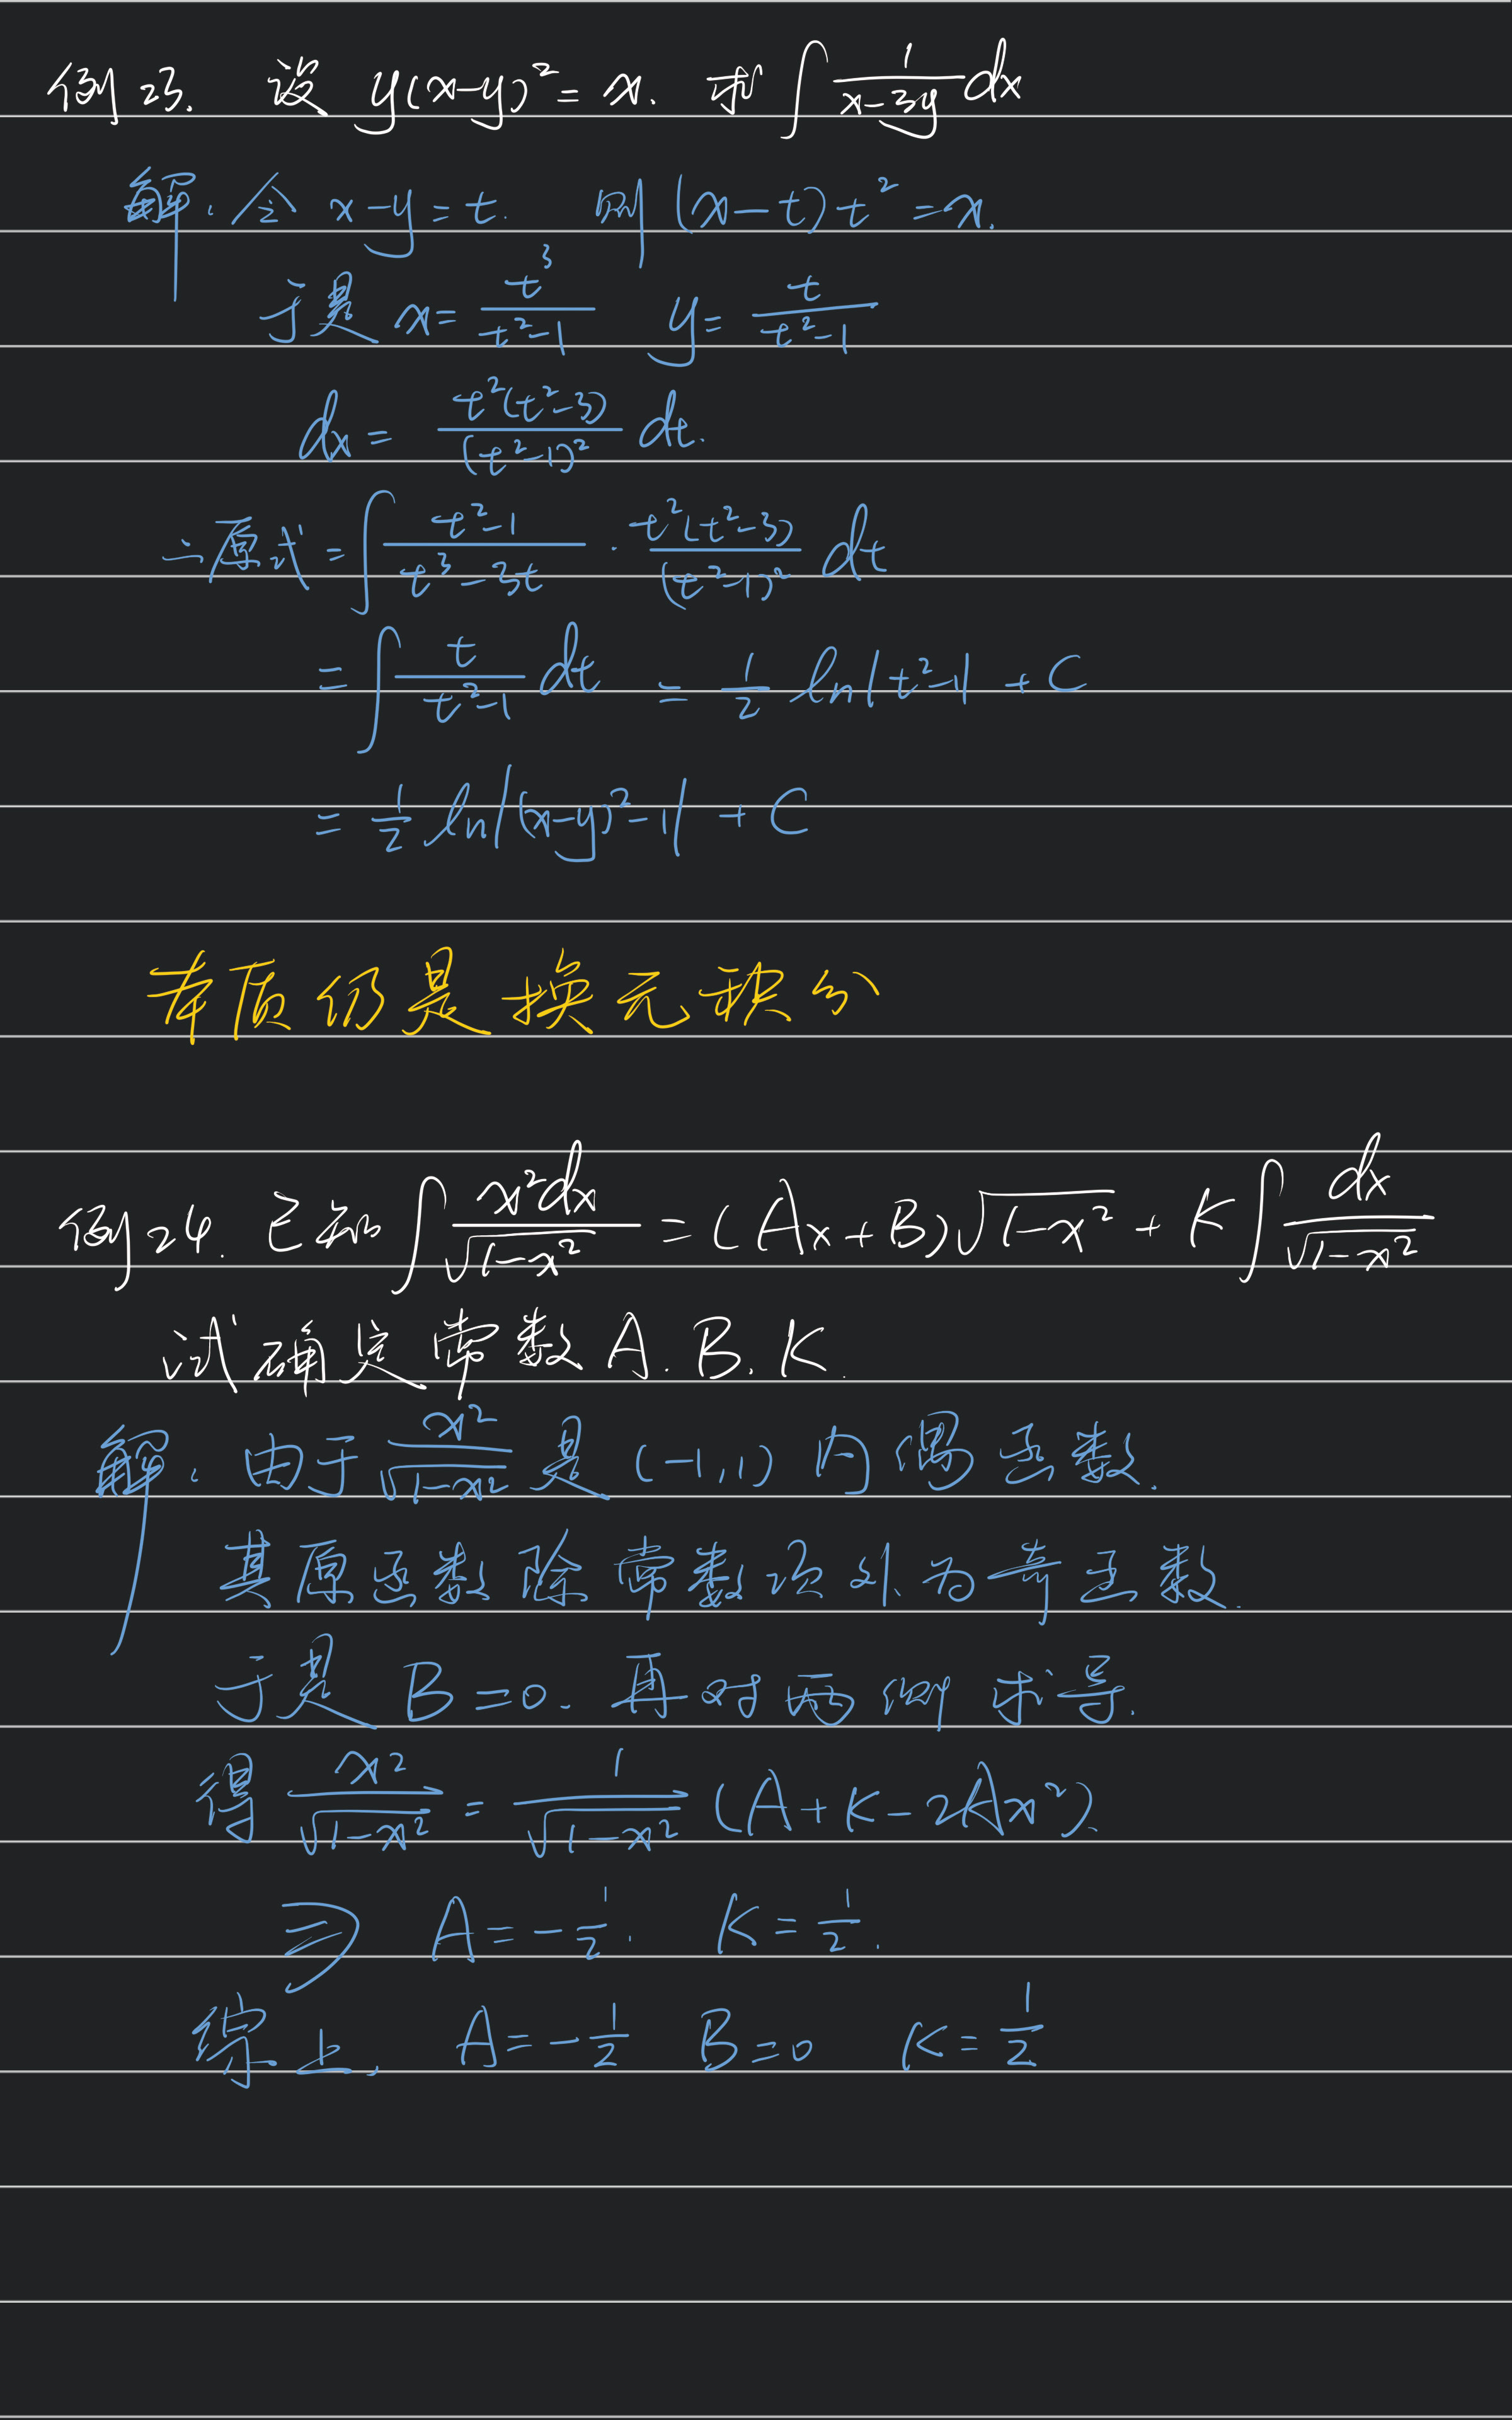 例23. 设 y(x-y)²=x. 求∫\frac{1}{x-3y}dx
解. 令 x-y=t. 则 (x-t)t²=x.
于是 x=\frac{t³}{t²-1} y=\frac{t}{t²-1}
dx=\frac{t²(t²-3)}{(t²-1)²}dt.
∴原式=∫\frac{t²-1}{t³-3t}·\frac{t²(t²-3)}{(t²-1)²}dt
=∫\frac{t}{t²-1}dt = \frac{1}{2}ln|t²-1|+C
=\frac{1}{2}ln|(x-y)²-1|+C
本质仍是换元积分
例24. 已知∫\frac{x²dx}{\sqrt{1-x²}}=(Ax+B)\sqrt{1-x²}+K∫\frac{dx}{\sqrt{1-x²}}
试确定常数A.B.K.
解. 由于\frac{x²}{\sqrt{1-x²}}是(-1,1)内偶函数.
其原函数除常数项外为奇函数.
于是 B=0. 再对两侧求导.
得\frac{x²}{\sqrt{1-x²}}=\frac{1}{\sqrt{1-x²}}(A+K-2Ax²).
⇒ A=-\frac{1}{2}. K=\frac{1}{2}.
综上, A=-\frac{1}{2} B=0 K=\frac{1}{2}